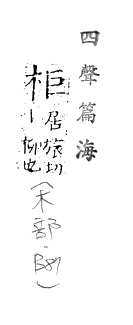 四聲篇海
柜
居旅切
｜柳也
(木部.